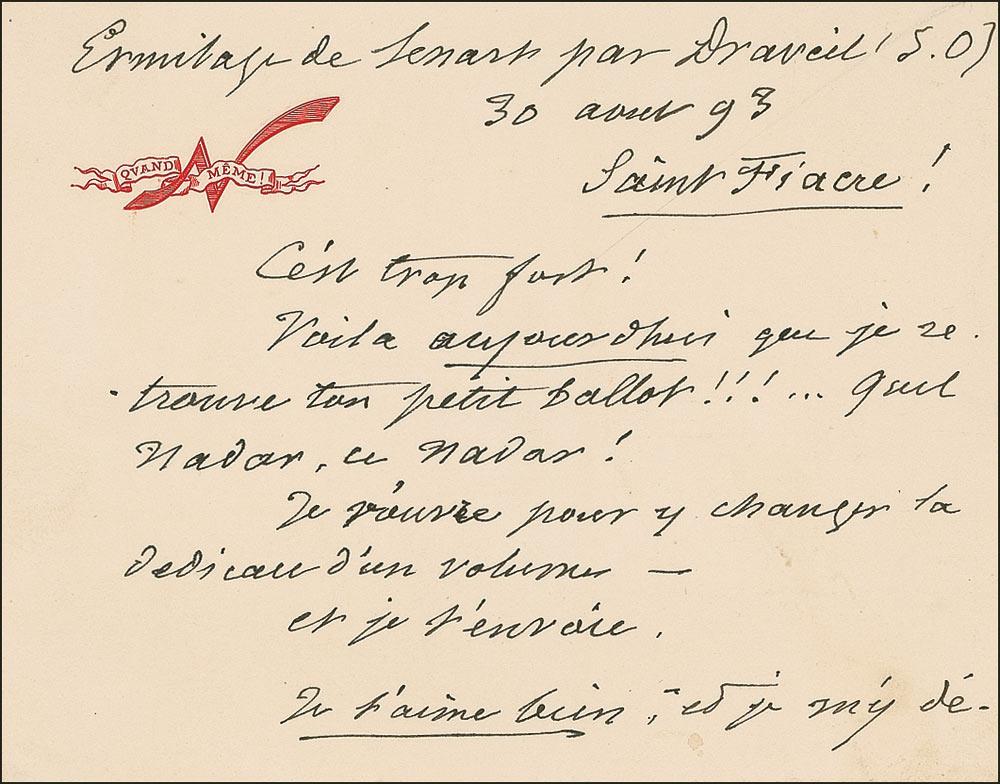 Ermitage de Senart par Draveil (S.O)
30 aout 93
QVAND MÊME!
Saint Fiacre !
C'est trop fort !
Voila aujourdhui que je re.
trouve ton petit ballot !!! ... Quel
Nadar, ce Nadar !
Je r'ouvre pour y changer la
dedicace d'un volume —
et je t'envoie.
Je t'aime bien, et je m'y dé-